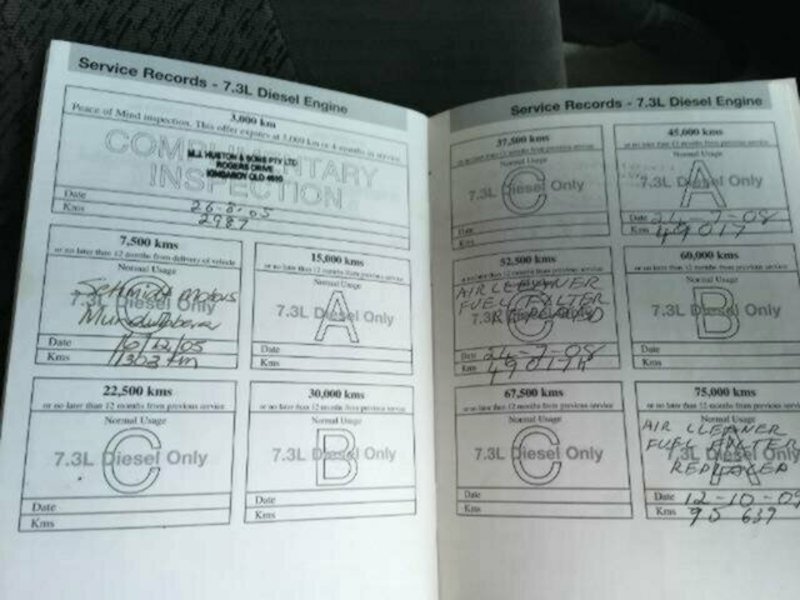 Service Records - 7.3L Diesel Engine
3,000 km
Peace of Mind inspection. This offer expires at 3,000 km or 4 months in service.
COMPLIMENTARY
INSPECTION
M.J. HUSTON & SONS PTY LTD
ROGERS DRIVE
KINGAROY QLD 4610
Date 26-8-05
Kms 2987
7,500 kms
or no later than 12 months from delivery of vehicle
Normal Usage
7.3L Diesel Only
Motors
Mundubbera
Date 16/12/05
Kms km
15,000 kms
or no later than 12 months from previous service
Normal Usage
A
7.3L Diesel Only
Date
Kms
22,500 kms
or no later than 12 months from previous service
Normal Usage
C
7.3L Diesel Only
Date
Kms
30,000 kms
or no later than 12 months from previous service
Normal Usage
B
7.3L Diesel Only
Date
Kms
Service Records - 7.3L Diesel Engine
37,500 kms
or no later than 12 months from previous service
Normal Usage
C
7.3L Diesel Only
Date
Kms
45,000 kms
or no later than 12 months from previous service
Normal Usage
A
7.3L Diesel Only
Date 24-7-08
Kms 49017
52,500 kms
or no later than 12 months from previous service
AIR CLEANER
FUEL FILTER
REPLACED
C
7.3L Diesel Only
Date 24-7-08
Kms 49017
60,000 kms
or no later than 12 months from previous service
Normal Usage
B
7.3L Diesel Only
Date
Kms
67,500 kms
or no later than 12 months from previous service
Normal Usage
C
7.3L Diesel Only
Date
Kms
75,000 kms
or no later than 12 months from previous service
Normal Usage
AIR CLEANER
FUEL FILTER
REPLACED
A
7.3L Diesel Only
Date 12-10-09
Kms 90 639